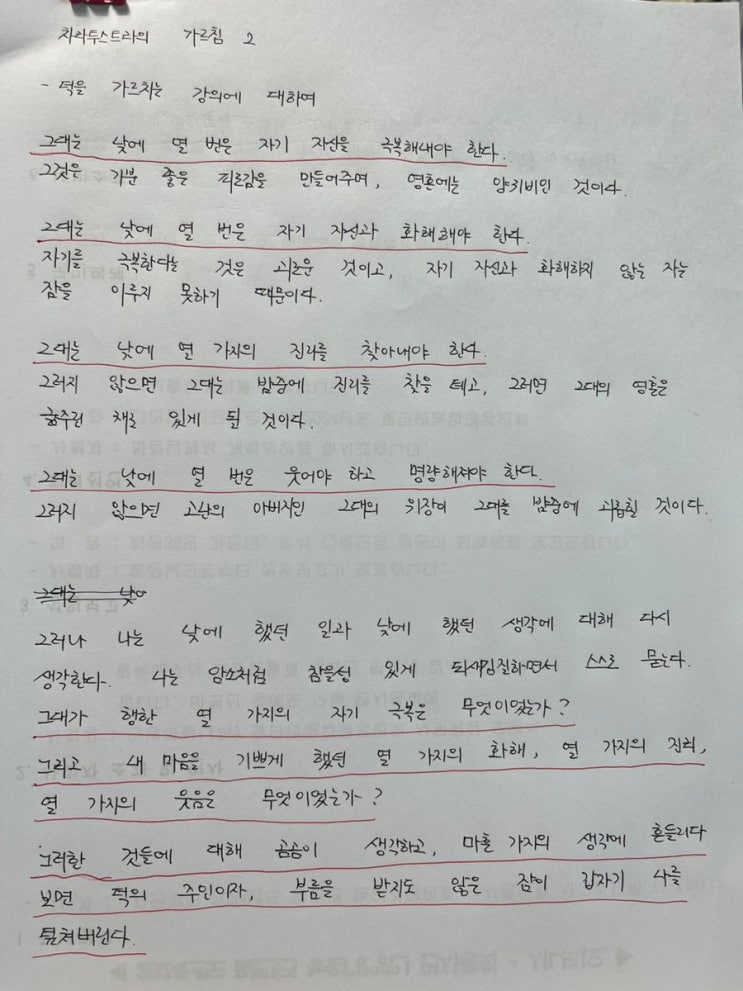 차라투스트라의 가르침 2
- 덕을 가르치는 강의에 대하여
그대는 낮에 열 번은 자기 자신을 극복해내야 한다.
그것은 기분 좋은 피로감을 만들어주며, 영혼에는 양귀비인 것이다.
그대는 낮에 열 번은 자기 자신과 화해해야 한다.
자기를 극복한다는 것은 괴로운 것이고, 자기 자신과 화해하지 않는 자는
잠을 이루지 못하기 때문이다.
그대는 낮에 열 가지의 진리를 찾아내야 한다.
그러지 않으면 그대는 밤중에 진리를 찾을 테고, 그러면 그대의 영혼은
굶주린 채로 있게 될 것이다.
그대는 낮에 열 번은 웃어야 하고 명랑해져야 한다.
그러지 않으면 고난의 아버지인 그대의 위장이 그대를 밤중에 괴롭힐 것이다.
그대는 낮
그러나 나는 낮에 했던 일과 낮에 했던 생각에 대해 다시
생각한다. 나는 암소처럼 참을성 있게 되새김질하면서 스스로 묻는다.
그대가 행한 열 가지의 자기 극복은 무엇이었는가?
그리고 내 마음을 기쁘게 했던 열 가지의 화해, 열 가지의 진리,
열 가지의 웃음은 무엇이었는가?
그러한 것들에 대해 곰곰이 생각하고, 마흔 가지의 생각에 흔들리다
보면 덕의 주인이자, 부름을 받지도 않은 잠이 갑자기 나를
덮쳐버린다.